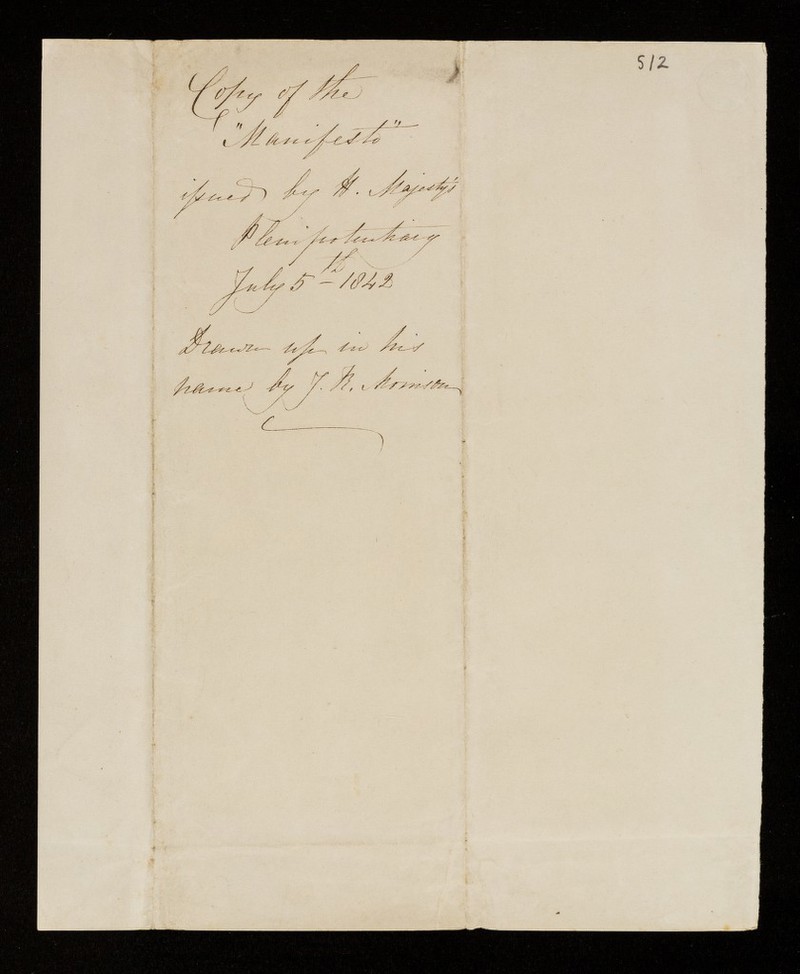 512
Copy of the
"Manifesto"
issued by H. Majesty's
Plenipotentiary
July 5th 1842
Drawn up in his
name by J. R. Morrison